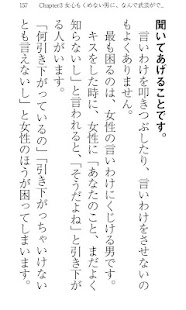 157　Chapter3 女心もくめない男に、なんで武装がで…
聞いてあげることです。
言いわけを叩きつぶしたり、言いわけをさせないの
もよくありません。
最も困るのは、女性の言いわけにくじける男です。
キスをした時に、女性に「あなたのこと、まだよく
知らないし」と言われると、「そうだよね」と引き下が
る人がいます。
「何引き下がっているの」「引き下がっちゃいけない
とも言えないし」と女性のほうが困ってしまいます。